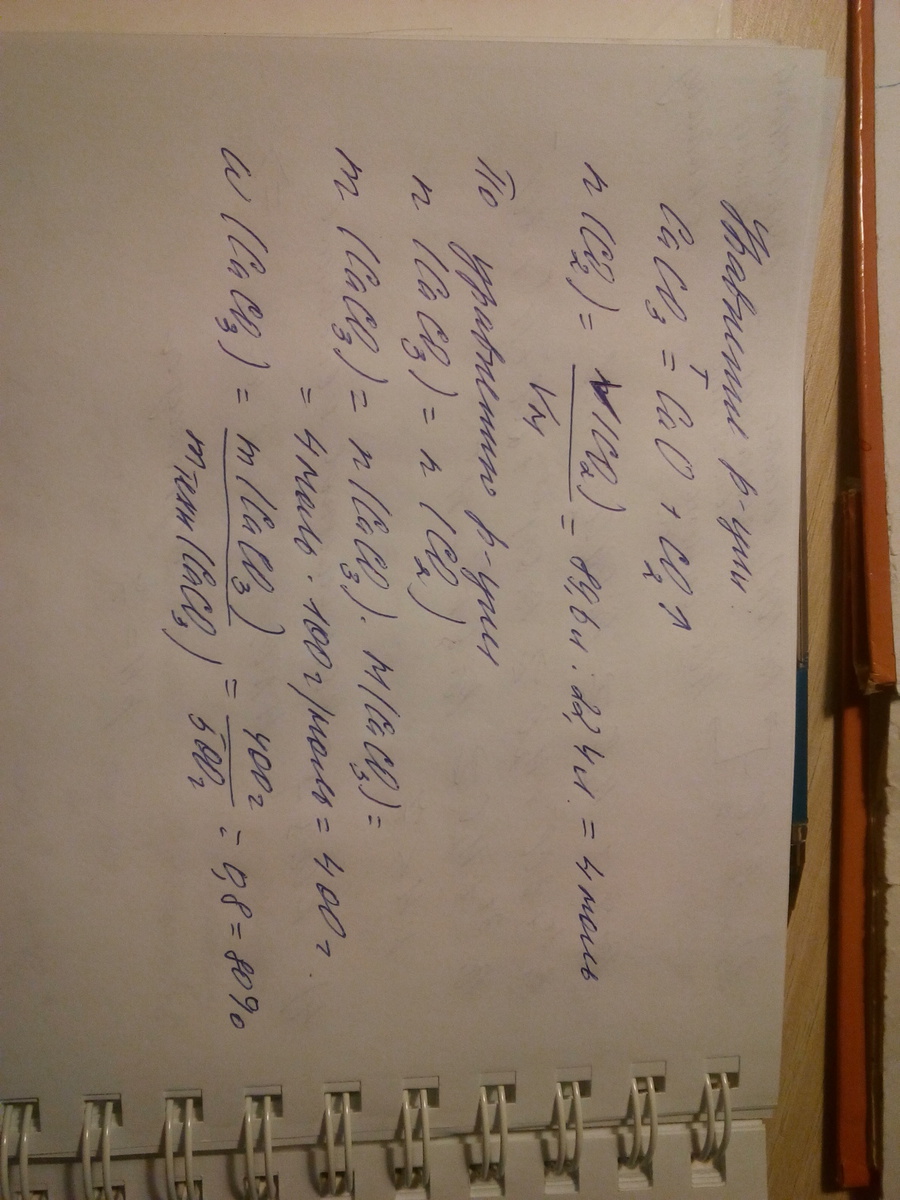 Уравнение р-ции:
CaCO₃ =ᵀ CaO + CO₂↑
n (CO₂) = V(CO₂) / Vм = 89,6л : 22,4л = 4 моль
По уравнению р-ции
n (CaCO₃) = n (CO₂)
m (CaCO₃) = n (CaCO₃) · M(CaCO₃) =
= 4 моль · 100 г/моль = 400г.
ω (CaCO₃) = m (CaCO₃) / m (CaCO₃) = 400г / 500г = 0,8 = 80%